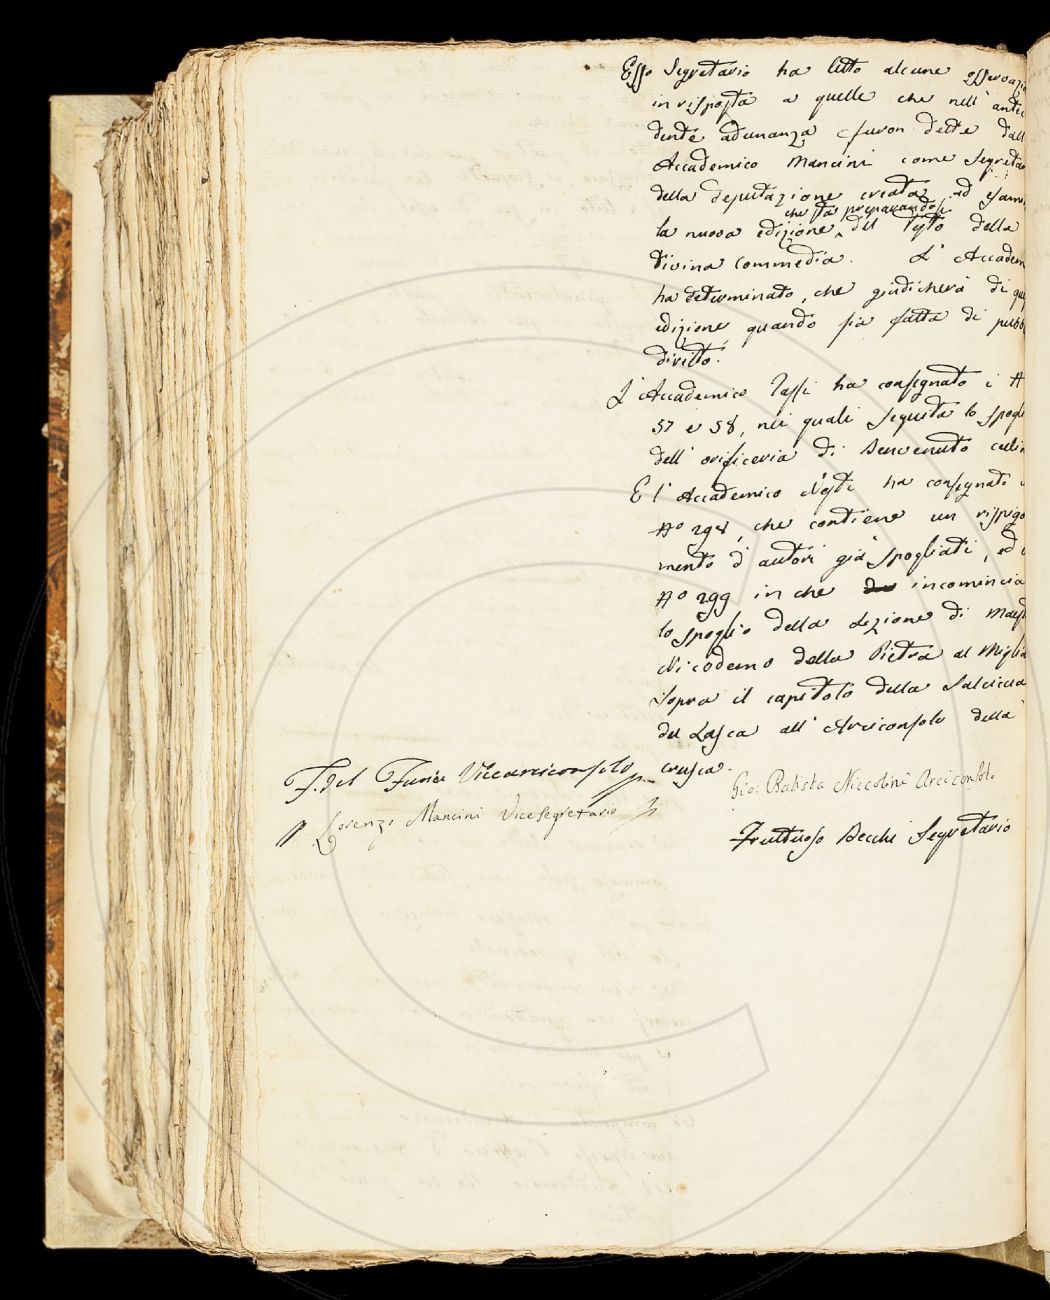 Esso Segretario ha letto alcune osservazio
in risposta a quelle che nell' antece
dente adunanza furon dette dall
Accademico Mancini come Segretar
della deputazione creata ad esami
la nuova edizione, che sta preparandosi, del Testo della
divina commedia. L' Accadem
ha determinato, che giudicherà di que
edizione quando sia fatta di pubb
diritto.
L' Accademico Tassi ha consegnato i N
57 e 58, nei quali seguita lo spogl
dell' orificeria di Benvenuto Cellin
E l' Accademico Nesti ha consegnato i
No 298, che contiene un rispigo
mento d' autori già spogliati, ed i
No 299 in che incomincia
lo spoglio della Lezione di Maest
Nicodemo della Pietra al Miglia
sopra il capitolo della Salciccia
del Lasca all' Arciconsolo della
Crusca.
F. del Furia Vicearciconsolo
Gio: Batista Niccolini Arciconsolo
Lorenzo Mancini Vicesegretario
Fruttuoso Becchi Segretario